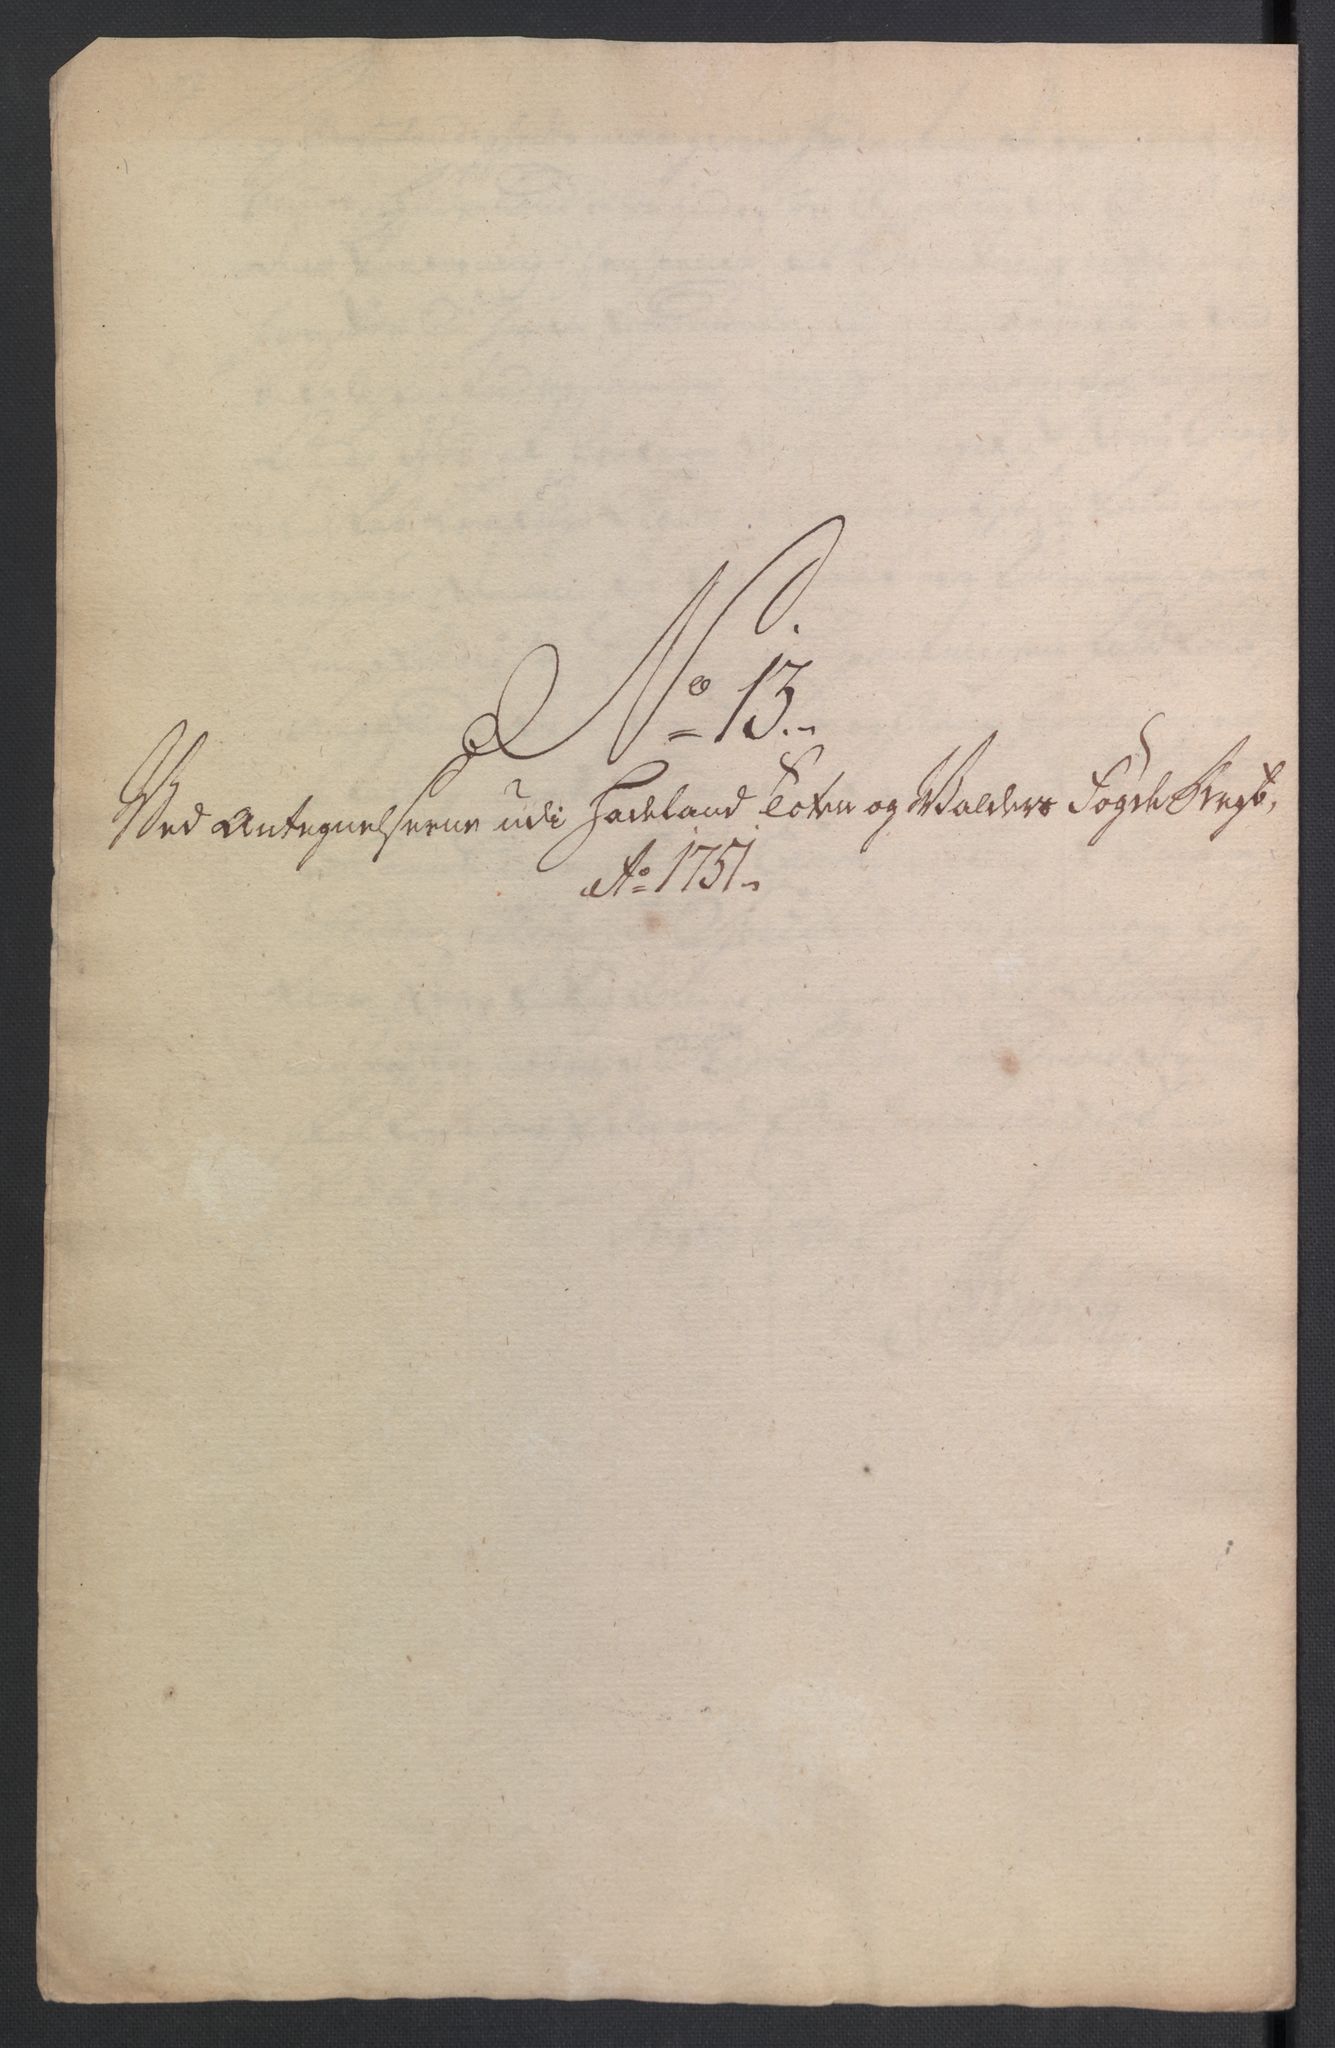 No 13.
Ved Antegnelserne udi Hadeland Toten og Walders Fogde Regb,
Ao 1751.